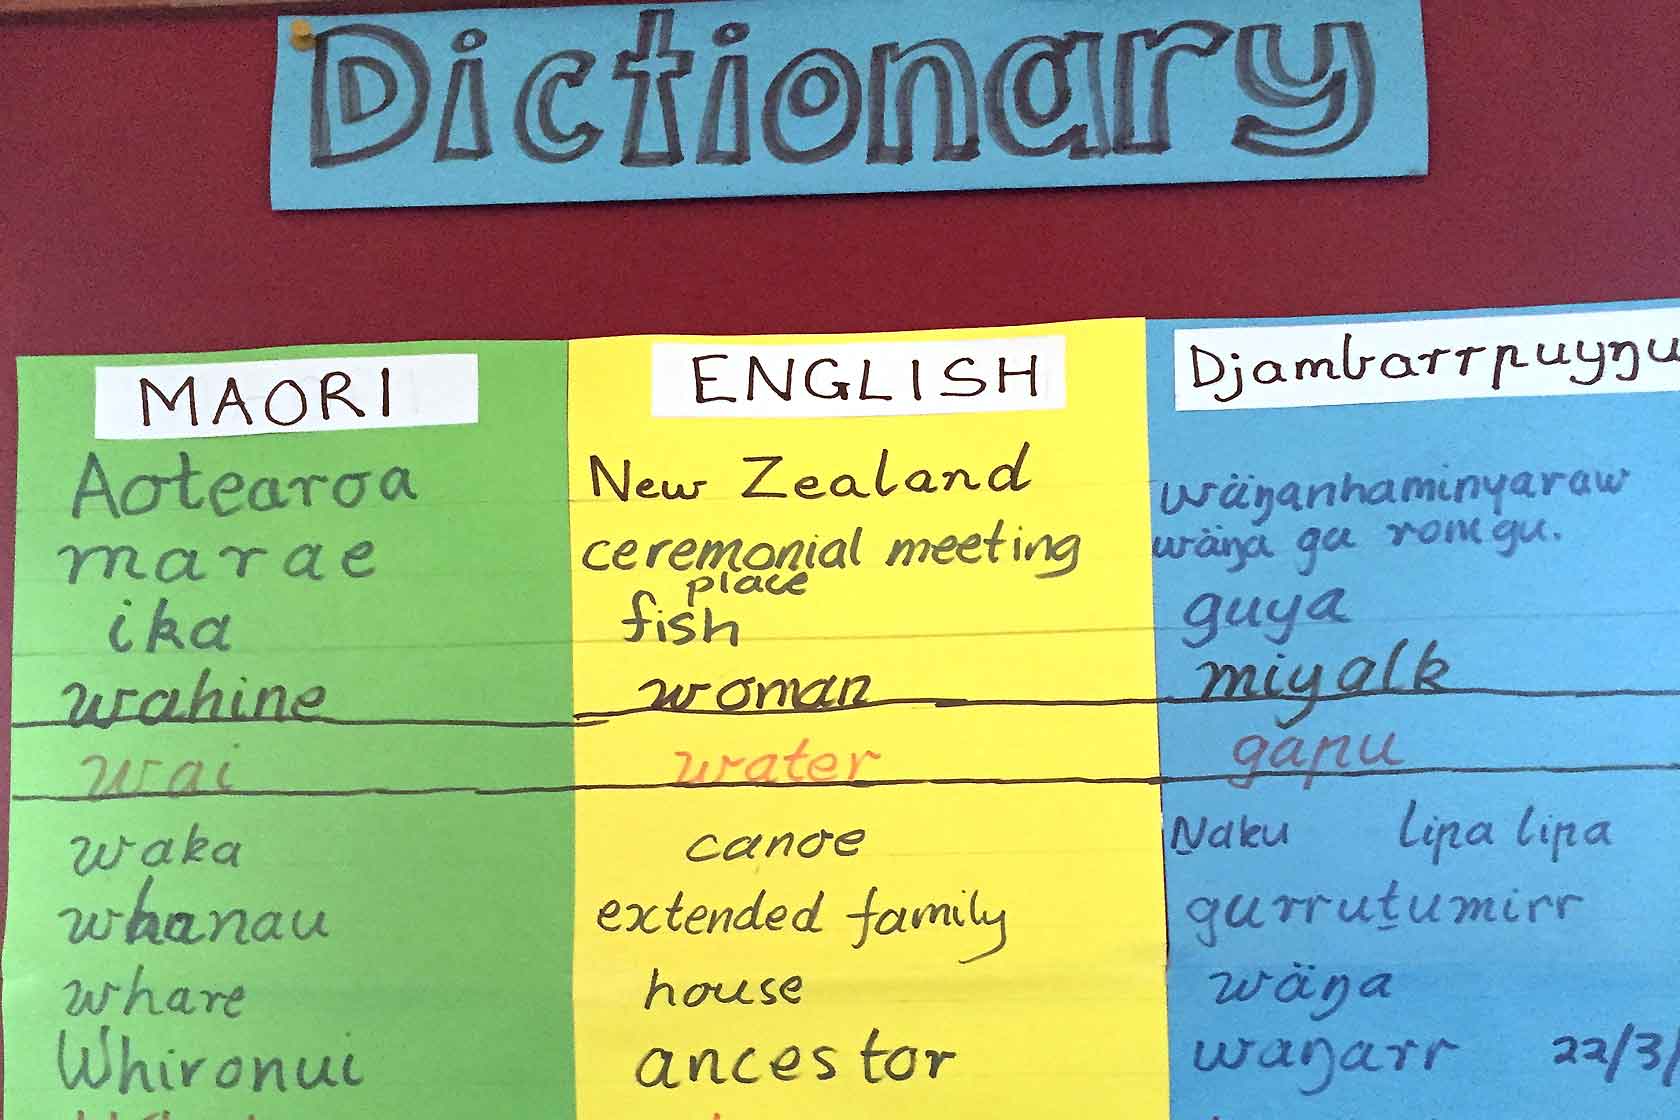 Dictionary
MAORI ENGLISH Djambarrpuyŋu
Aotearoa New Zealand wäŋanhaminyaraw
marae ceremonial meeting wäŋa ga romgu.
place
ika fish guya
wahine woman miyalk
wai water gapu
waka canoe Ṉaku lipa lipa
whanau extended family gurruṯumirr
whare house wäŋa
Whironui ancestor waŋarr 22/3/